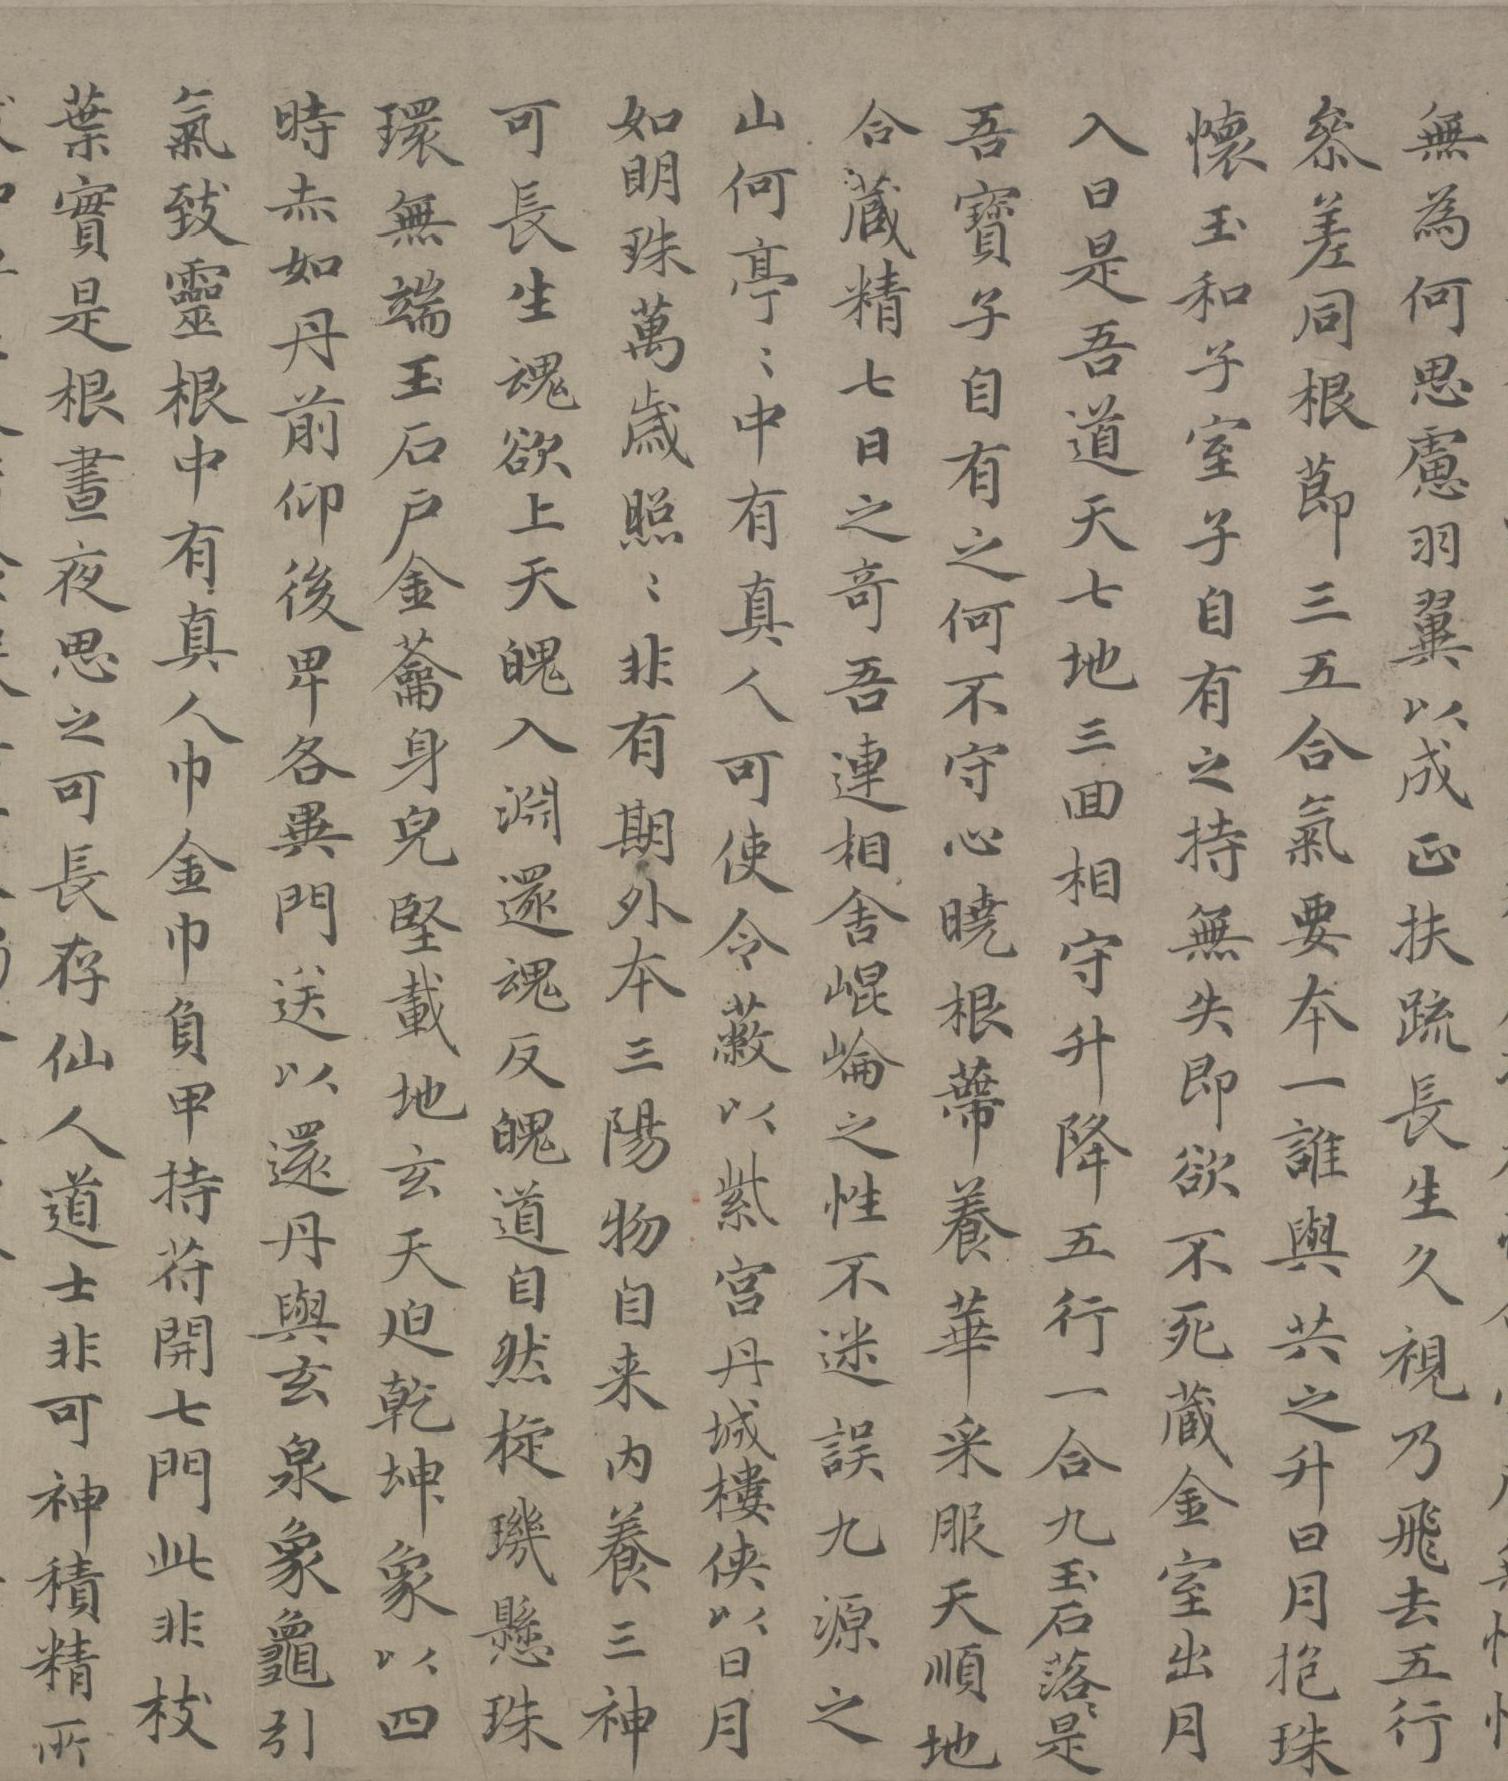 無為何思慮羽翼以成正扶疏長生久視乃飛去五行
參差同根莭三五合氣要本一誰與共之升日月抱珠
懷玉和子室子自有之持無失即欲不死藏金室出月
入日是吾道天七地三囬相守升降五行一合九玉石落〻是
吾寶子自有之何不守心曉根蔕養華采服天順地
合蔵精七日之奇吾連相舍崐崘之性不迷誤九源之
山何亭〻中有真人可使令蔽以紫宮丹城樓俠以日月
如明珠萬歲照〻非有期外本三陽物自来內養三神
可長生魂欲上天魄入淵還魂反魄道自然㯀璣懸珠
環無端玉石戶金蘥身皃堅載地玄天迫乾坤象以四
時赤如丹前仰後卑各異門送以還丹與玄泉象龜引
氣致靈根中有真人巾金巾負甲持苻開七門此非枝
葉實是根晝夜思之可長存仙人道士非可神積精所